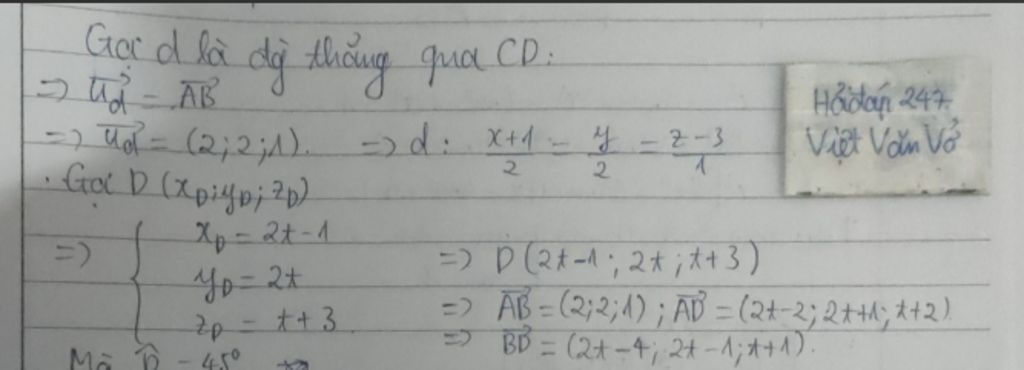 Gọi d là đg thẳng qua CD:
=> u_d→ = AB→
=> u_d→ = (2;2;1). => d: (x+1)/2 = y/2 = (z-3)/1
Hỏi đáp 247
Việt Văn Vở
. Gọi D (x_D; y_D; z_D)
=> { x_D = 2t-1
y_D = 2t => D(2t-1; 2t; t+3)
z_D = t+3 => AB→ = (2;2;1); AD→ = (2t-2; 2t+1; t+2)
=> BD→ = (2t-4; 2t-1; t+1).
Mà D̂ = 45°